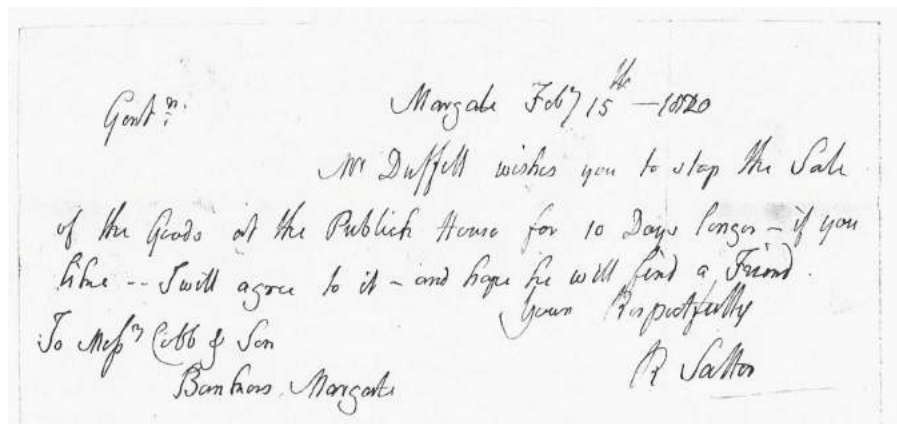 Gentn. Margate Feby 15th — 1820
Mr Duffett wishes you to stop the Sale
of the Goods at the Publick House for 10 Days longer – if you
like -- I will agree to it – and hope he will find a Friend.
Yours Respectfully
To Messrs Cobb & Son
R Salter
Bankers, Margate